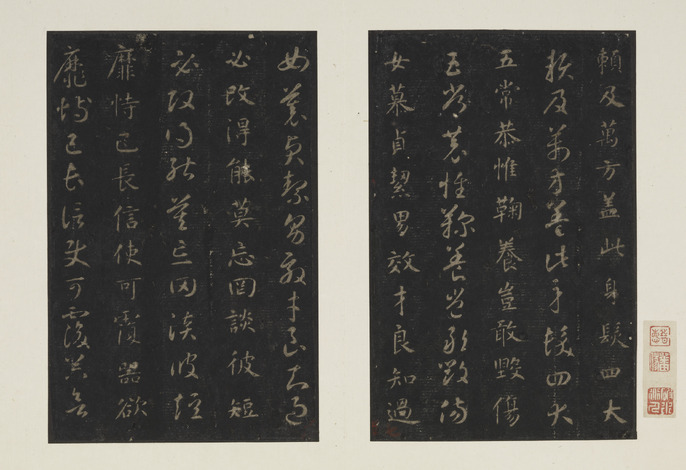 賴及萬方蓋此身髮四大
賴及萬方蓋此身髮四大
五常恭惟鞠養豈敢毀傷
五常恭惟鞠養豈敢毀傷
女慕貞絜男效才良知過
女慕貞絜男效才良知過
必改得能莫忘罔談彼短
必改得能莫忘罔談彼短
靡恃己長信使可覆器欲
靡恃己長信使可覆器欲